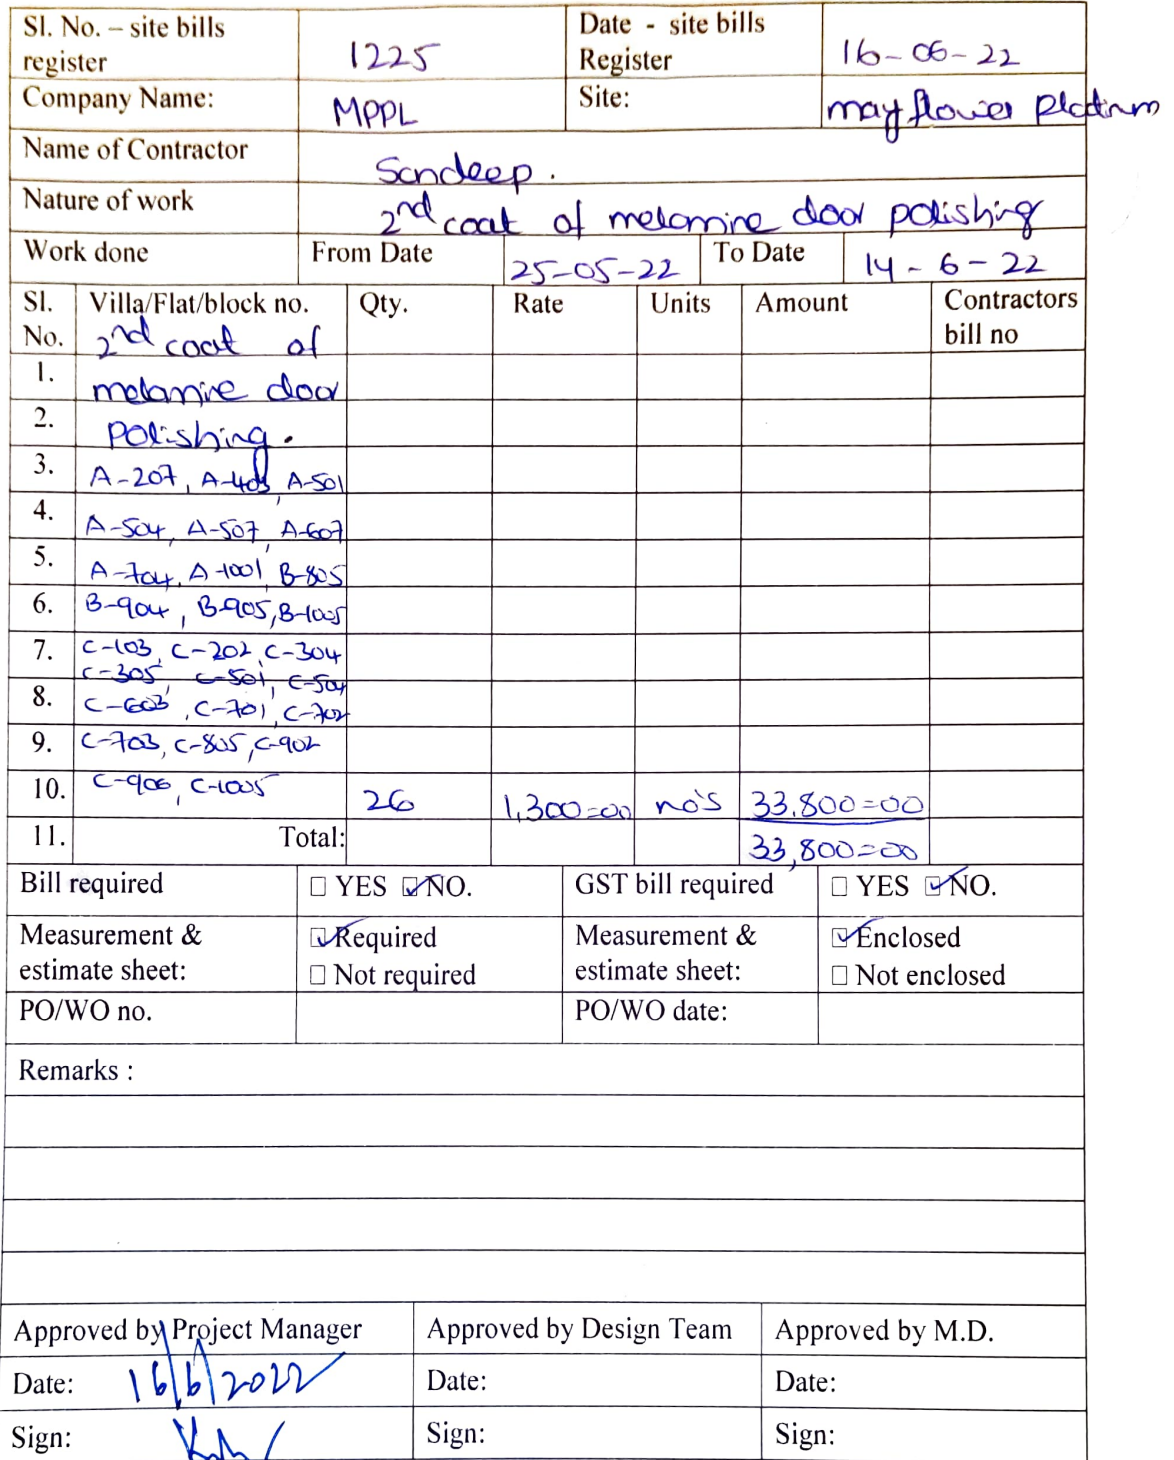 Sl. No. – site bills register 1225 Date - site bills Register 16-06-22
Company Name: MPPL Site: mayflower Platinum
Name of Contractor Sandeep.
Nature of work 2nd coat of melamine door polishing
Work done From Date 25-05-22 To Date 14-6-22
Sl. No. Villa/Flat/block no. Qty. Rate Units Amount Contractors bill no
2nd coat of
1. melamine door
2. Polishing.
3. A-207, A-403, A-501
4. A-504, A-507, A-607
5. A-704, A-1001, B-805
6. B-904, B-905, B-1005
7. C-103, C-202, C-304
C-305, C-501, C-504
8. C-603, C-701, C-702
9. C-703, C-805, C-902
10. C-906, C-1005 26 1,300=00 no's 33,800=00
11. Total: 33,800=00
Bill required ☐ YES ☑ NO. GST bill required ☐ YES ☑ NO.
Measurement & estimate sheet: ☑ Required ☐ Not required Measurement & estimate sheet: ☑ Enclosed ☐ Not enclosed
PO/WO no. PO/WO date:
Remarks :
Approved by Project Manager Approved by Design Team Approved by M.D.
Date: 16/6/2022 Date: Date:
Sign: Sign: Sign: